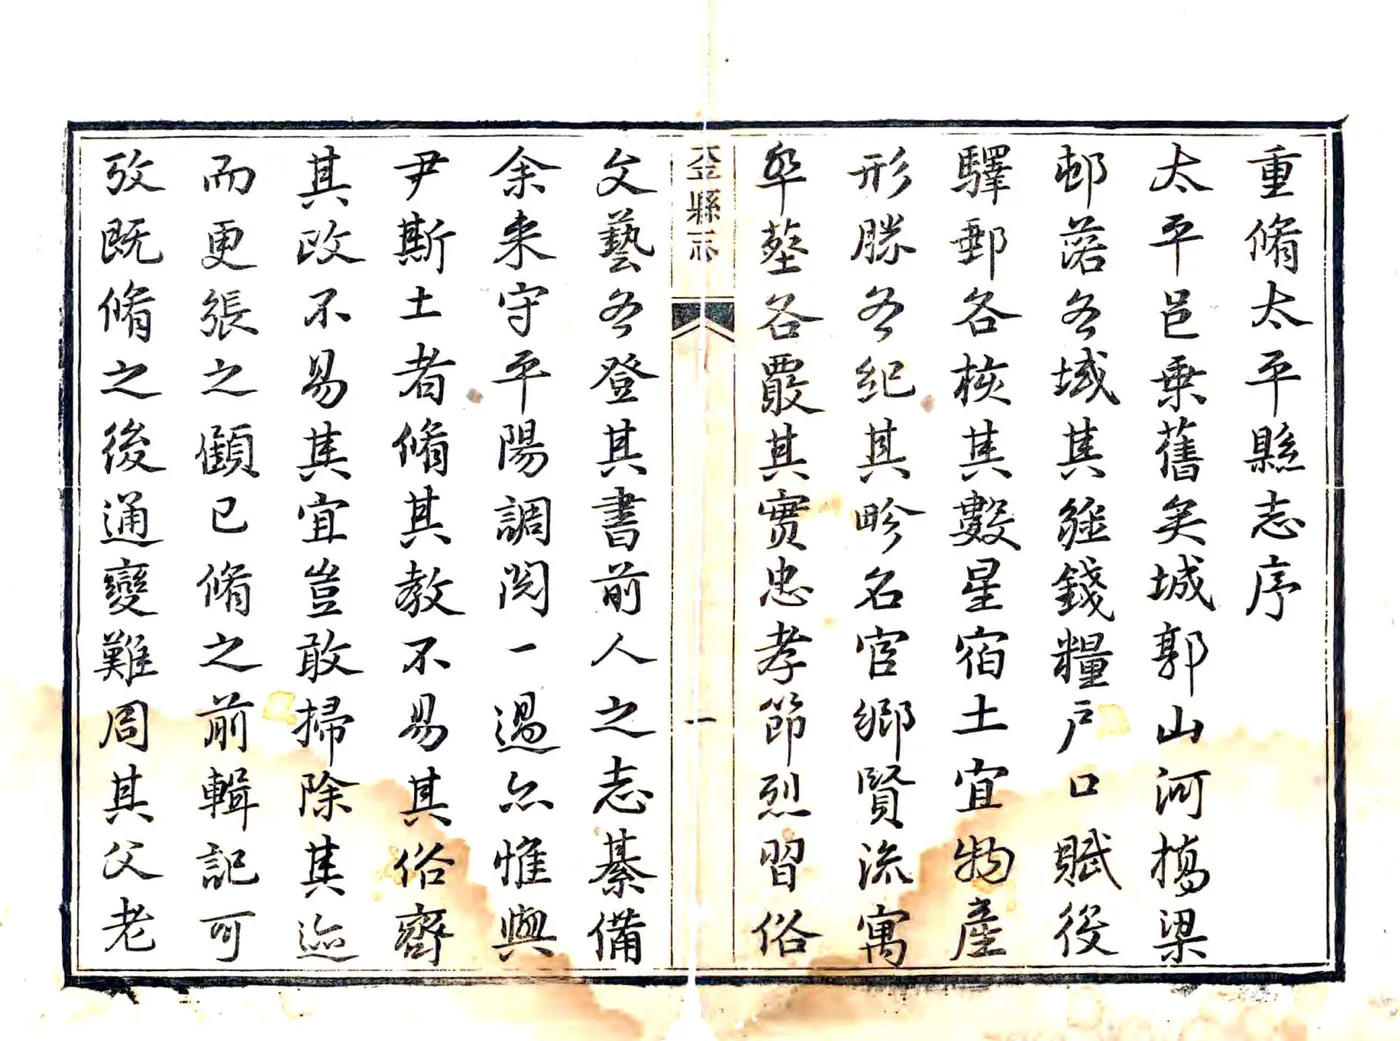 重脩太平縣志序
太平邑乗舊矣城郭山河橋梁
邨落各域其經錢糧戸口賦役
驛郵各核其數星宿土宜物産
形勝各紀其畛名宦鄉賢流寓
卒塟各覈其實忠孝節烈習俗
太平縣志
一
文藝各登其書前人之志綦備
余来守平陽調閱一過亦惟與
尹斯土者脩其教不易其俗齊
其政不易其宜豈敢掃除其迹
而更張之顧已脩之前輯記可
攷既脩之後通變難周其父老